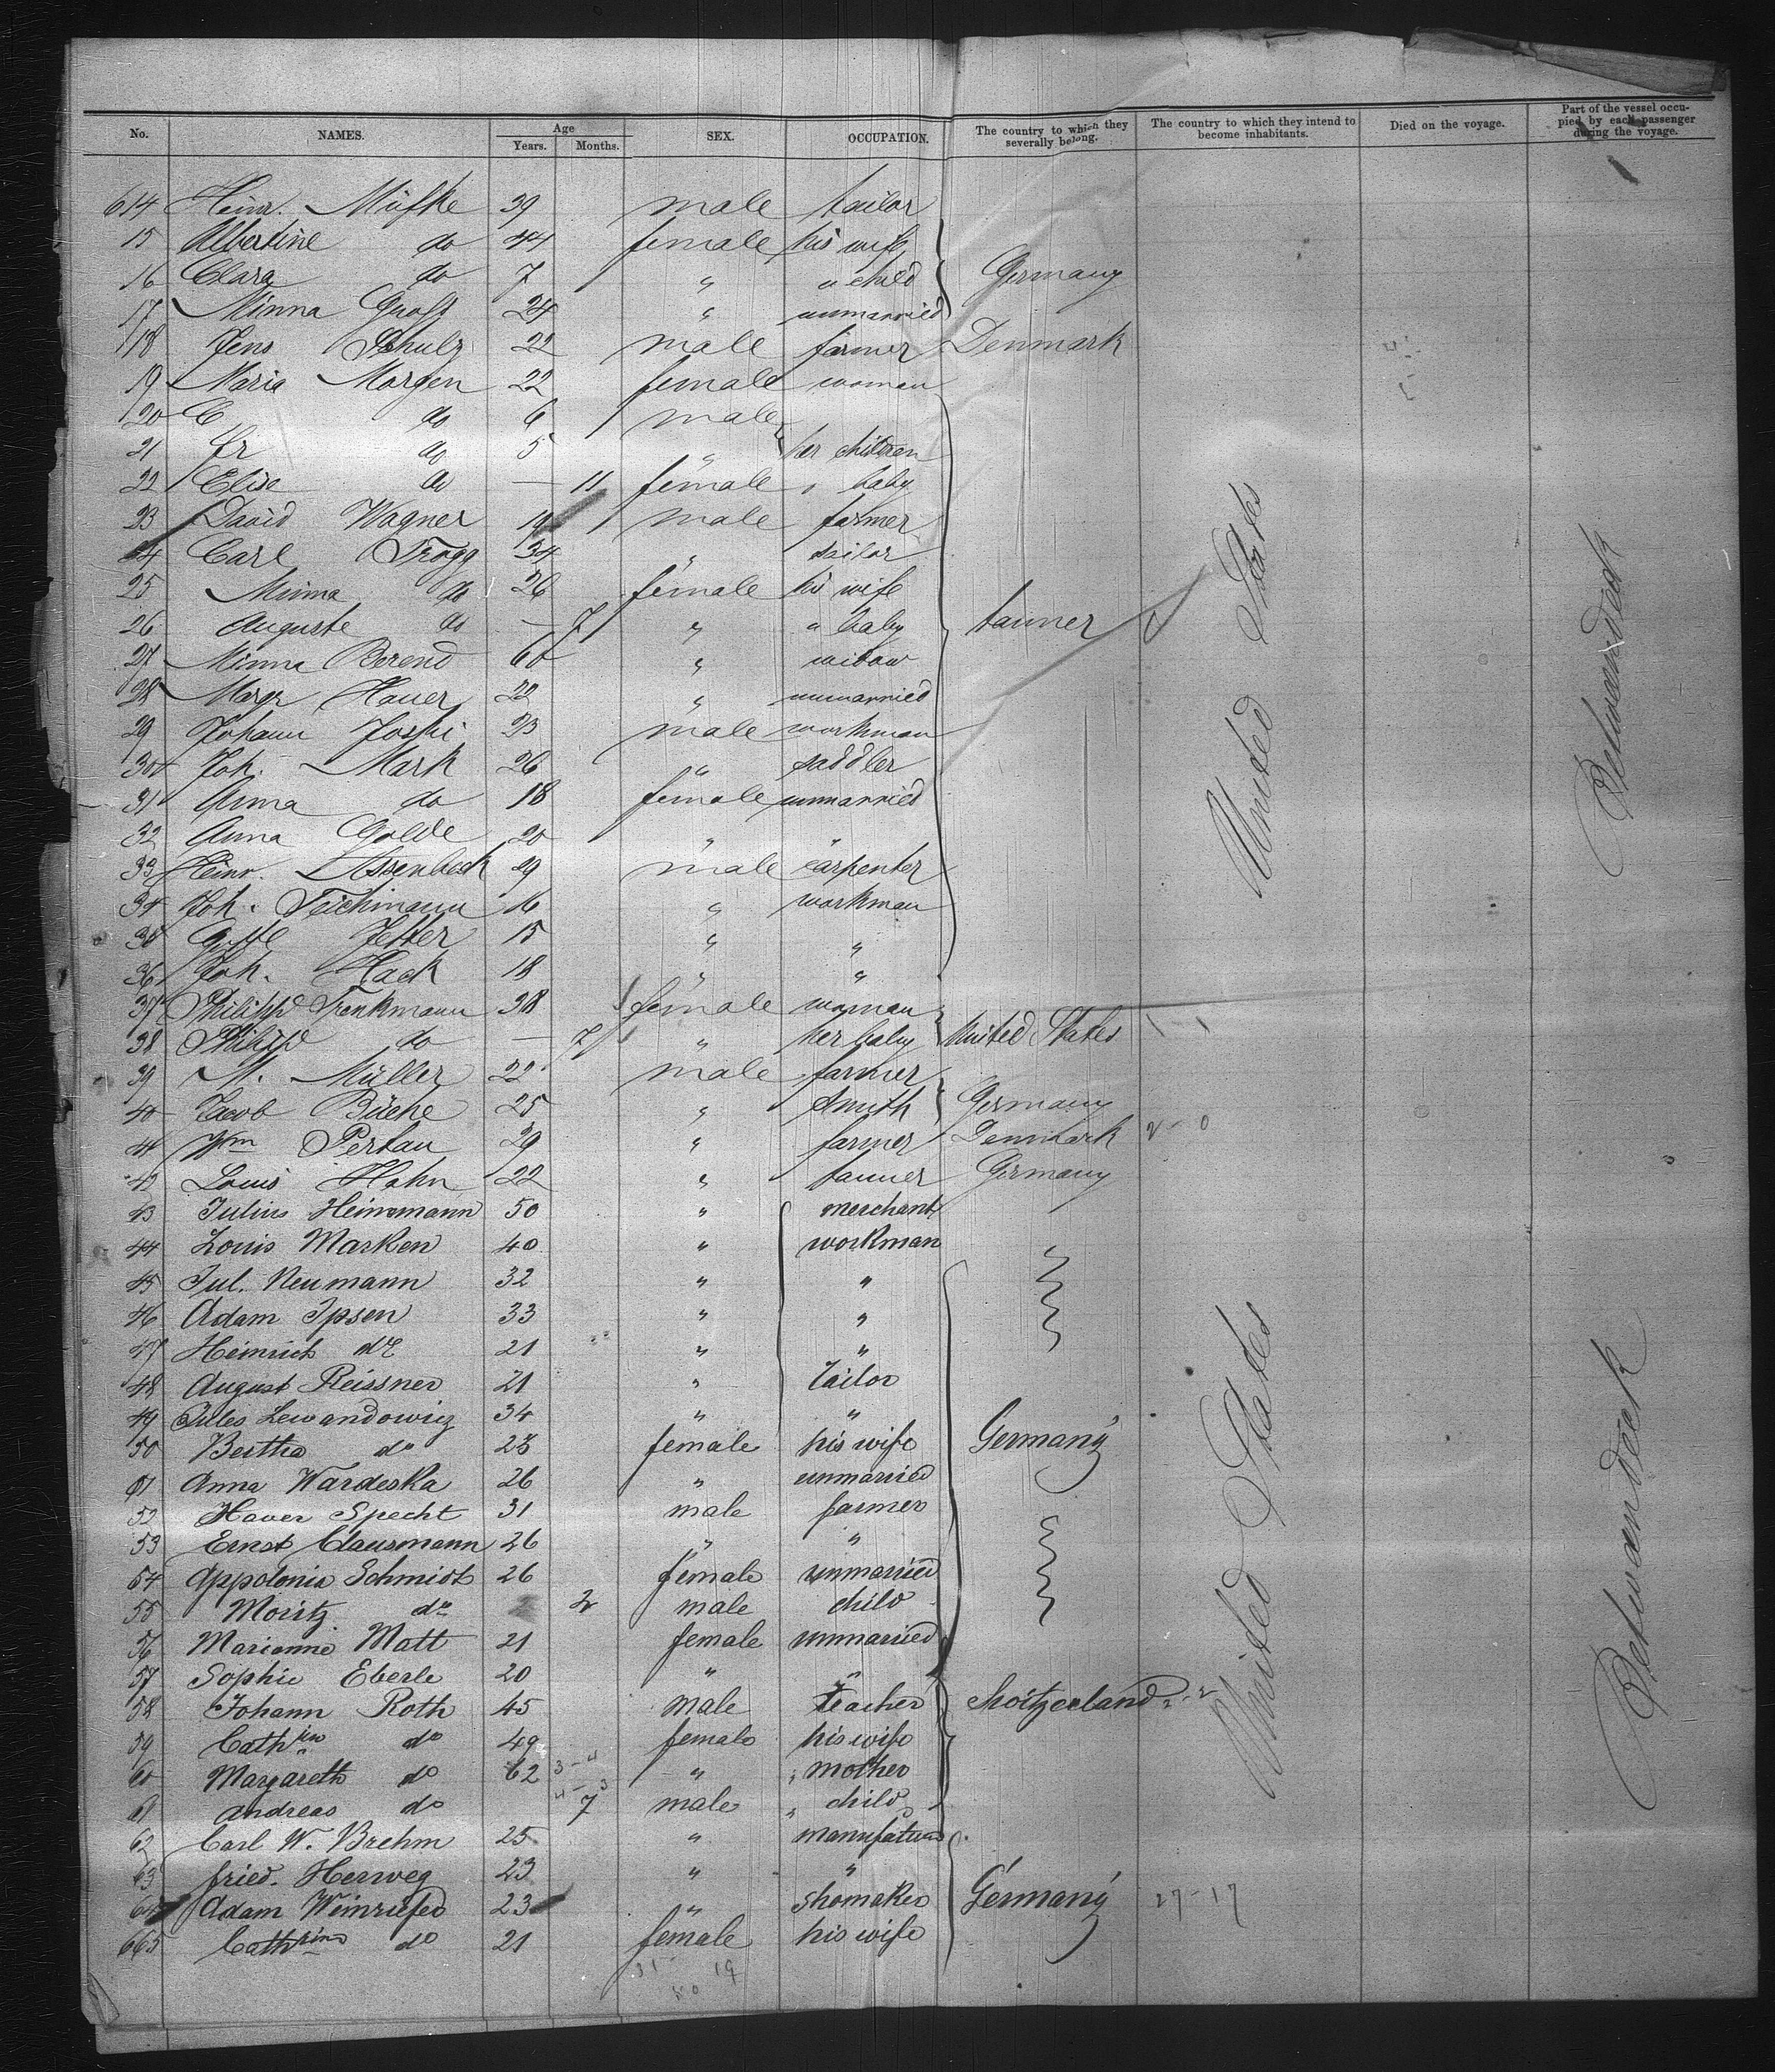 No. NAMES. Age Years. Months. SEX. OCCUPATION. The country to which they severally belong. The country to which they intend to become inhabitants. Died on the voyage. Part of the vessel occupied by each passenger during the voyage.
614 Heinr. Müfke 39 male tailor
15 Albertine do 44 female his wife
16 Clara do 7 " " child Germany
17 Minna Groß 24 " unmarried
18 Jens Schulz 22 male farmer Denmark
19 Maria Morgen 22 female woman
20 C do 6 male
21 Fr do 5 " her children
22 Elise do — 11 female " baby
23 David Wagner 19 male farmer
24 Carl Trogg 34 "
25 Minna do 26 female his wife
26 Auguste do — 7 " " baby tanner United States Betweendeck
27 Minna Berend 60 " widow
28 Margr Hauer 22 " unmarried
29 Johann Joski 23 male workman
30 Joh. Mark 26 " saddler
31 Anna do 18 female unmarried
32 Anna Golde 20 " "
33 Heinr. 29 male carpenter
34 Joh. Teichmann 16 " workman
35 Jetter 15 " "
36 Joh. Hack 18 " "
37 Philippd Trenkmann 38 female woman
38 do — 7 " her baby United States
39 M. Müller 22 male farmer
40 Jacob 25 " smith Germany
41 Wm Perlau 29 " farmer Denmark
42 Louis Hahn 22 " tanner Germany
43 Julius Heinemann 50 " merchant
44 Louis Marken 40 " workman
45 Jul. Neumann 32 " "
46 Adam Ipsen 33 " "
47 Heinrich do 21 " "
48 August Reissner 21 " Tailor
49 Jules Lewandowicz 34 " "
50 Bertha do 28 female his wife Germany United States Betweendeck
51 Anna Wardeska 26 " unmarried
52 Haver Specht 31 male farmer
53 Ernst Clausmann 26 " "
54 Appolonia Schmidt 26 female unmarried
55 Moritz do male child
56 Marianne Matt 21 female unmarried
57 Sophie Eberle 20 " "
58 Johann Roth 45 male Teacher Switzerland
59 Cathrin do 49 female his wife
60 Margareth do 62 " " mother
61 Andreas do 7 male " child
62 Carl W. Brehm 25 "
63 fried. Herweg 23 " "
64 Adam 23 " shomaker Germany 27-17
665 Cathrine do 21 female his wife
31 19